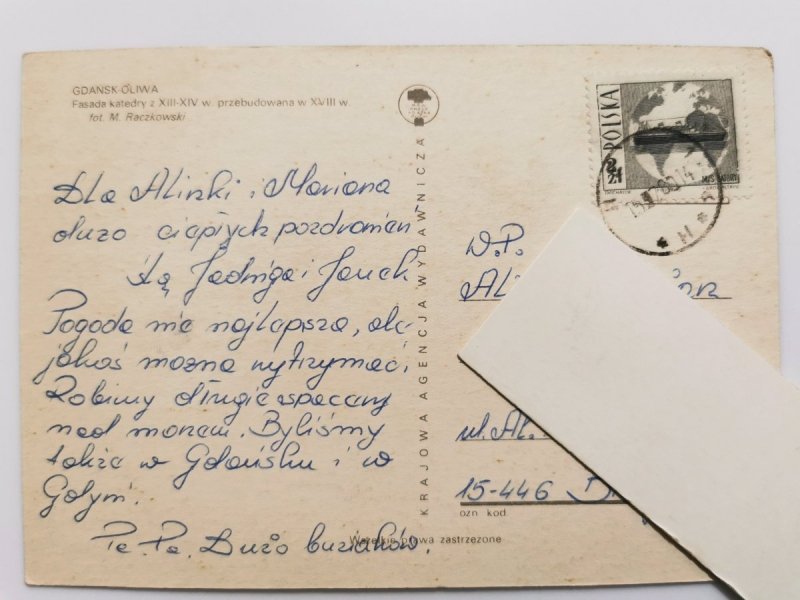 GDAŃSK-OLIWA
Fasada katedry z XIII-XIV w. przebudowana w XVIII w.
fot. M. Raczkowski
Dla Alinki i Mariana
dużo ciepłych pozdrowień
ślą Jadwiga i Janek
Pogoda nie najlepsza, ale
jakoś można wytrzymać.
Robimy długie spacery
nad morzem. Byliśmy
także w Gdańsku i w
Gdyni.
Pa. Pa. Dużo buziaków.
Wszelkie prawa zastrzeżone
KRAJOWA AGENCJA WYDAWNICZA
POLSKA
2 zł
W.P.
ul. Al.
15-446
ozn. kod.